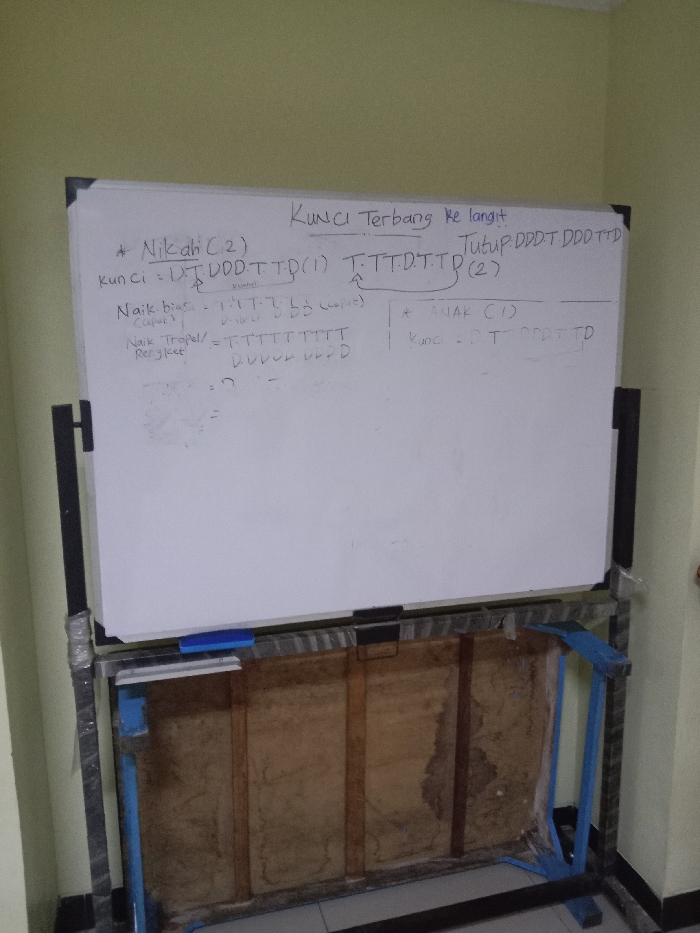 Kunci Terbang ke langit
* Nikah (2)
Tutup: DDD.T.DDD.TTD
Kunci = D.T.DDD.T.T.D (1) T.TT.D.T.TD (2)
Naik biasa
(cepat) = (cepat)
Naik Tropel/
Rengket = T.T.T.T.T T.T.T.T
D.D.D.D D.D.D.D
* ANAK (1)
Kunci = D.T DDD.T.TD